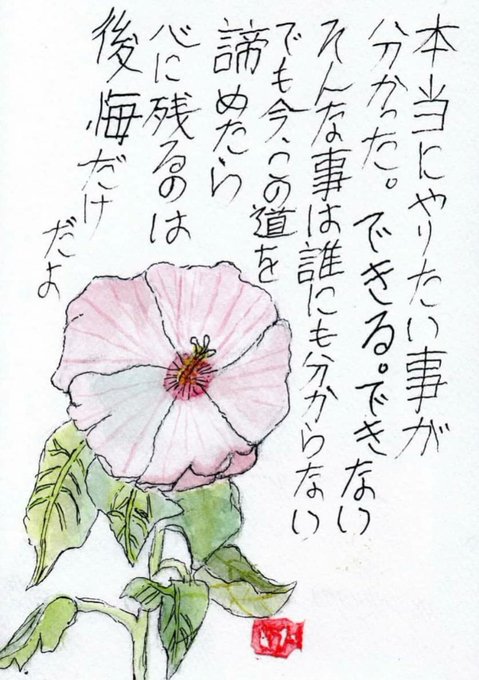 本当にやりたい事が
分かった。できる。できない
そんな事は誰にも分からない
でも今、この道を
諦めたら
心に残るのは
後悔だけ
だよ